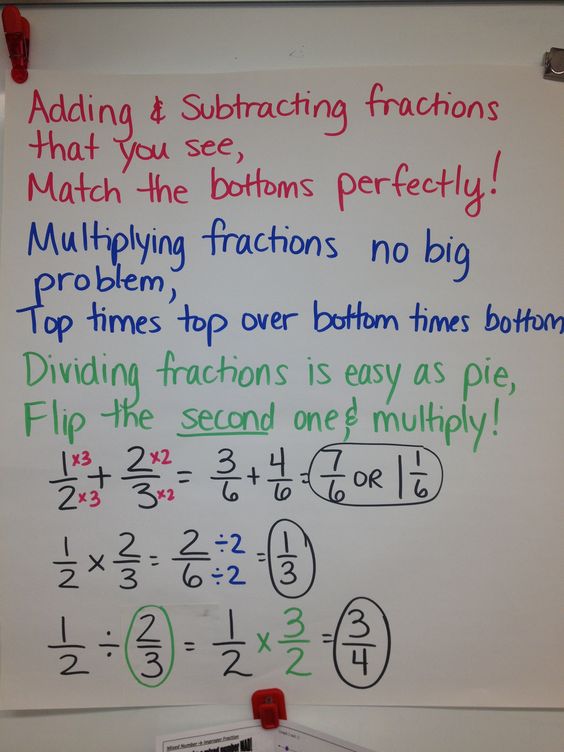 Adding & Subtracting fractions
that you see,
Match the bottoms perfectly!
Multiplying fractions no big
problem,
Top times top over bottom times bottom
Dividing fractions is easy as pie,
Flip the second one & multiply!
1/2 ×3/×3 + 2/3 ×2/×2 = 3/6 + 4/6 = 7/6 OR 1 1/6
1/2 × 2/3 = 2/6 ÷2/÷2 = 1/3
1/2 ÷ 2/3 = 1/2 × 3/2 = 3/4
Mixed Number → Improper Fraction
mixed number MAD!